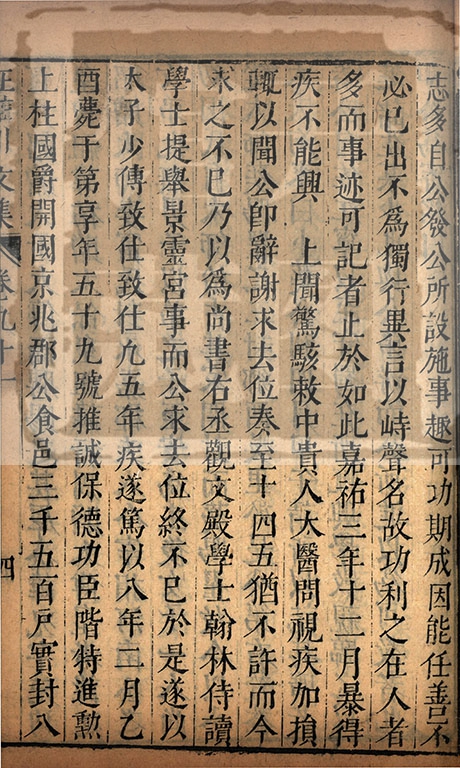 志多自公發公所設施事趣可功期成因能任善不
必已出不為獨行異言以峙聲名故功利之在人者
多而事迹可記者止於如此嘉祐三年十二月暴得
疾不能興　上聞驚駭敕中貴人太醫問視疾加損
輒以聞公即辭謝求去位奏至十四五猶不許而今
求之不已乃以為尚書右丞觀文殿學士翰林侍讀
學士提舉景靈宮事而公求去位終不已於是遂以
太子少傅致仕致仕凡五年疾遂篤以八年二月乙
酉薨于第享年五十九號推誠保德功臣階特進勳
上柱國爵開國京兆郡公食邑三千五百戶實封八
川文集　卷九十一　四